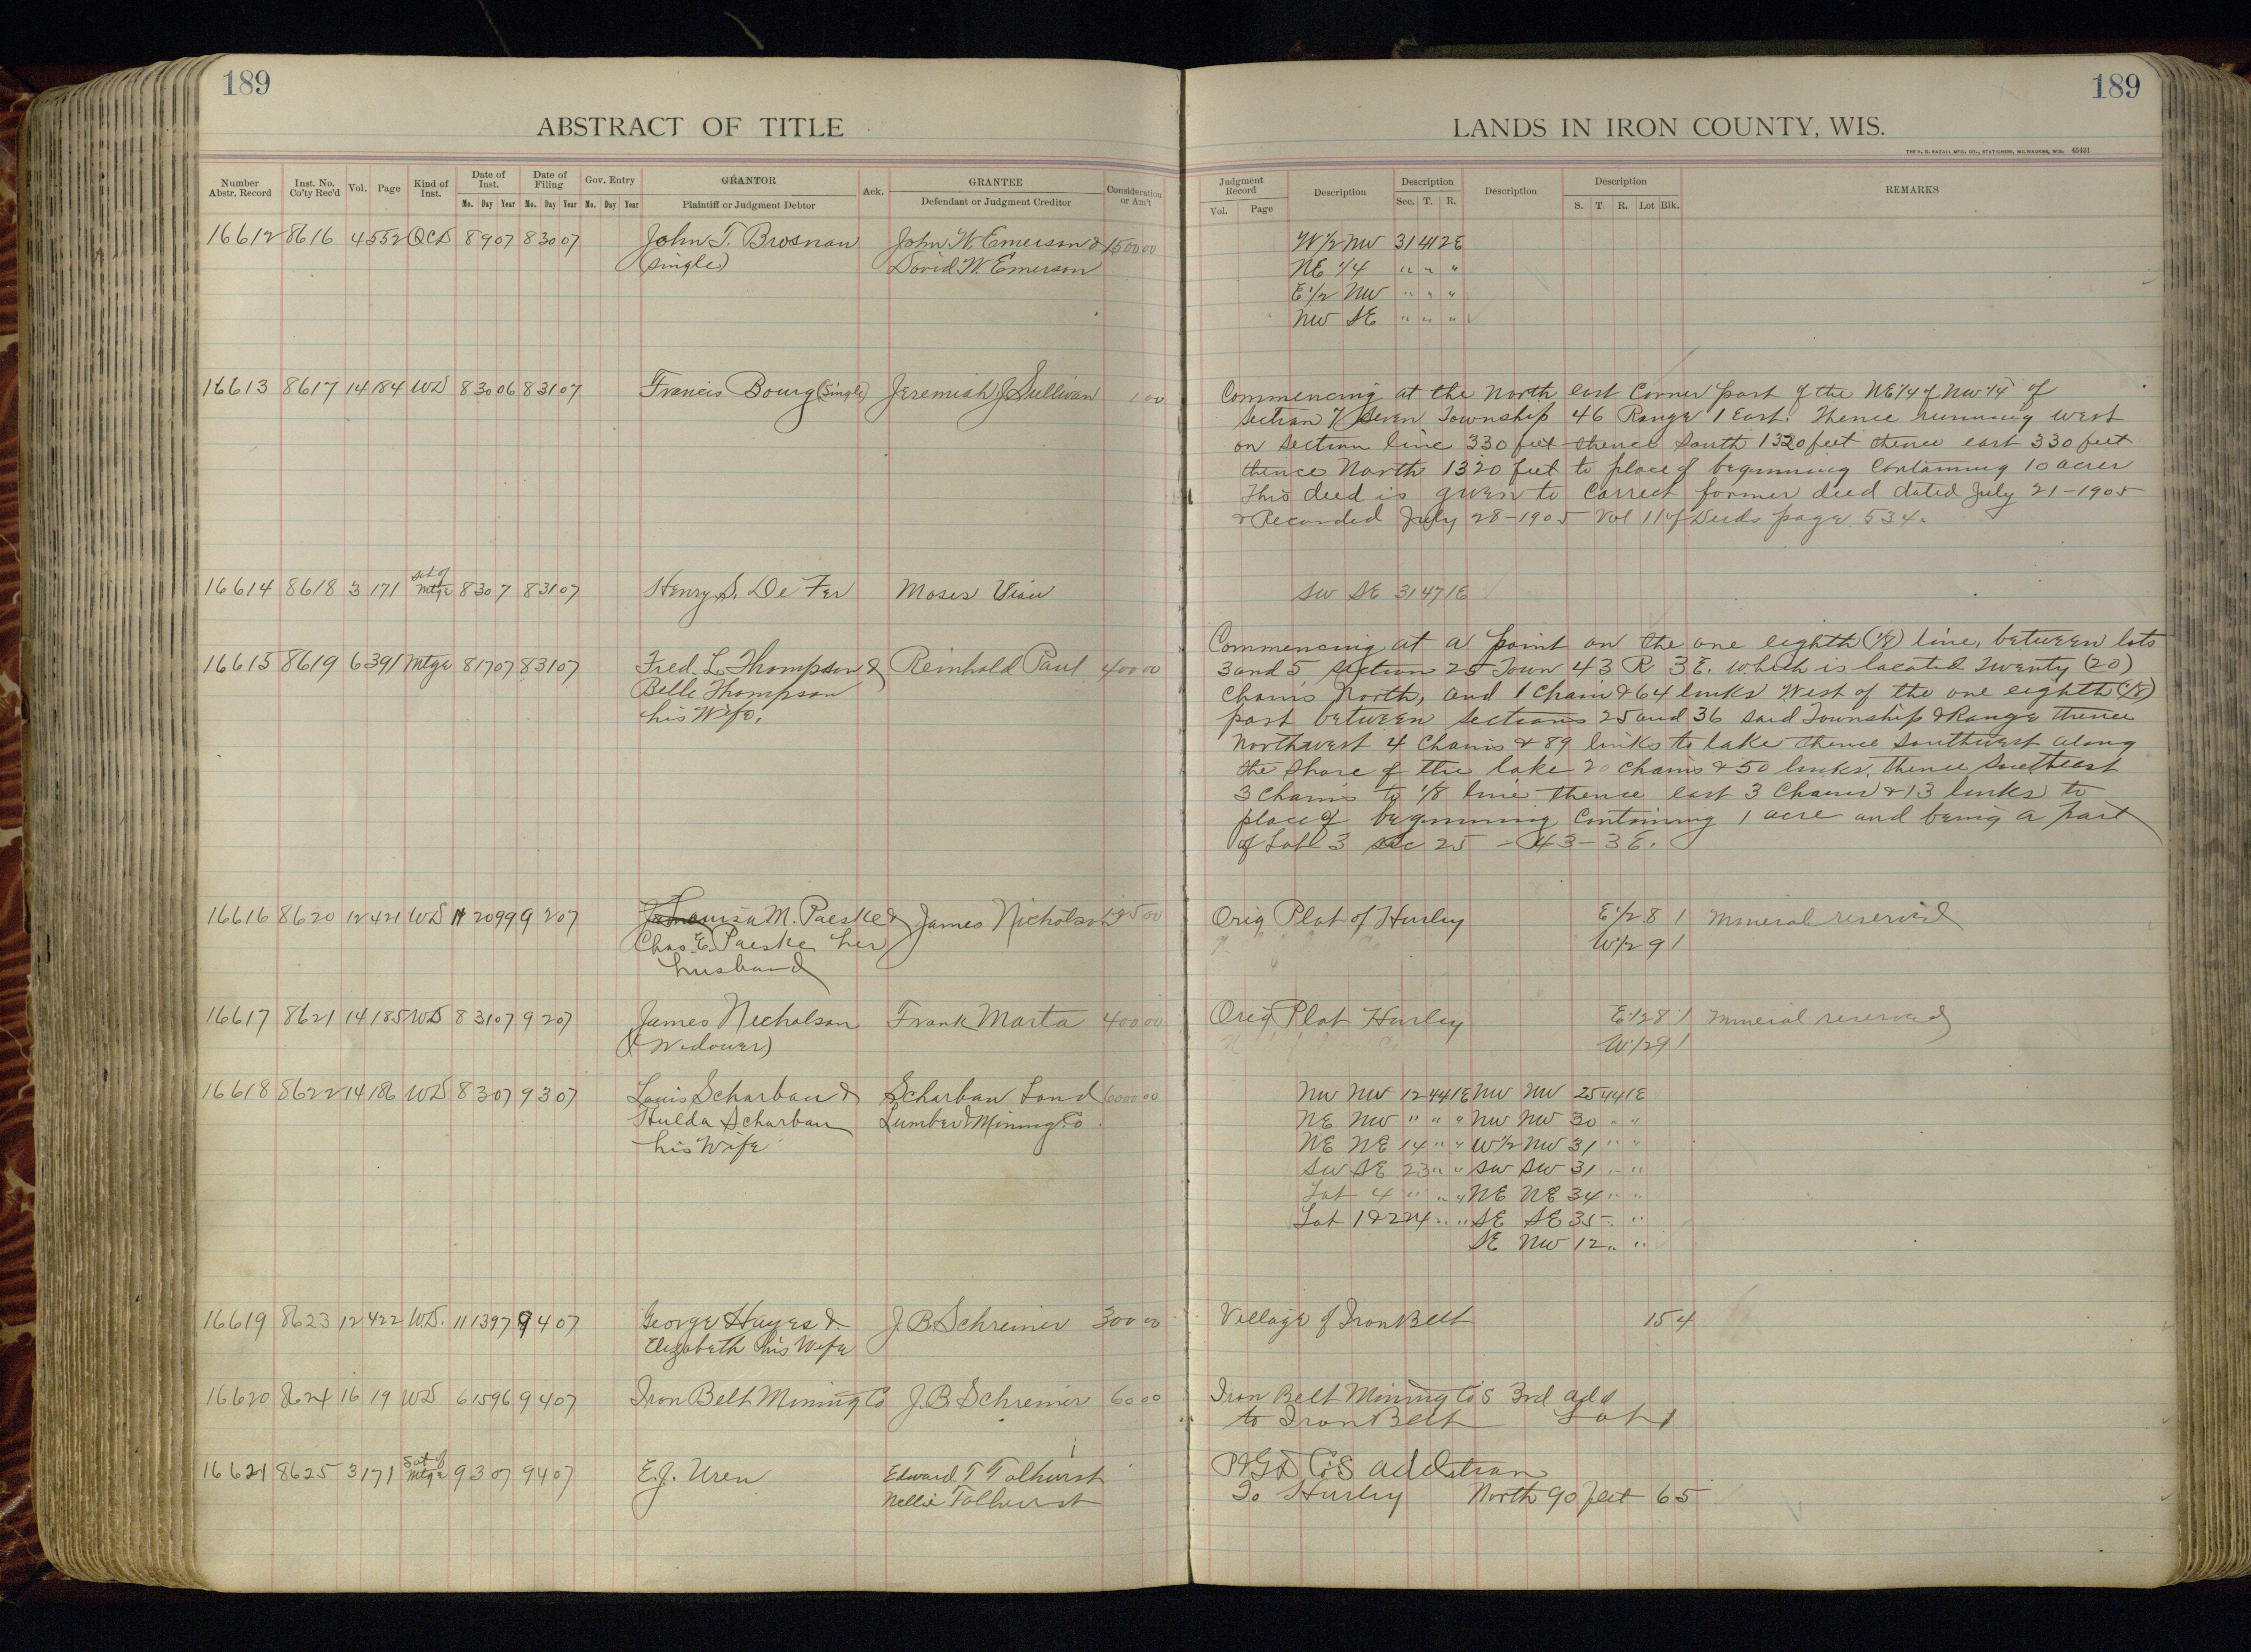 189
ABSTRACT OF TITLE
Number Abstr. Record
Inst. No. Co'ty Rec'd
Vol.
Page
Kind of Inst.
Date of Inst.
Mo. Day Year
Date of Filing
Mo. Day Year
Gov. Entry
Mo. Day Year
GRANTOR
Plaintiff or Judgment Debtor
Ack.
GRANTEE
Defendant or Judgment Creditor
Consideration or Am't
16612 8616 4 552 QCD 8 9 07 8 30 07 John T. Brosnan John W. Emerson & 1500 00
(single) David W. Emerson
16613 8617 14 184 WD 8 30 06 8 31 07 Francis Bourg (Single) Jeremiah J. Sullivan 1 00
16614 8618 3 171 Sat of Mtge 8 30 7 8 31 07 Henry S. De Fer Moses Viau
16615 8619 6 391 Mtge 8 17 07 8 31 07 Fred. L. Thompson & Reinhold Paul 400 00
Belle Thompson
his Wife.
16616 8620 12 421 WD 11 20 99 9 2 07 Louisa M. Paeske & James Nicholson 125 00
Chas. E. Paeske her
husband
16617 8621 14 185 WD 8 31 07 9 2 07 James Nicholson Frank Marta 400 00
(Widower)
16618 8622 14 186 WD 8 30 7 9 3 07 Louis Scharbau & Scharbau Land 6000 00
Hulda Scharbau Lumber & Mining Co
his Wife
16619 8623 12 422 W.D. 11 13 97 9 4 07 George Hayes & J. B. Schreiner 300 00
Elizabeth his Wife
16620 8624 16 19 WD 6 15 96 9 4 07 Iron Belt Mining Co J. B. Schreiner 60 00
16621 8625 3 171 Sat of Mtge 9 3 07 9 4 07 E. J. Uren Edward T Tolhurst
Nellie Tolhurst
189
LANDS IN IRON COUNTY, WIS.
THE H. G. RAZALL MFG. CO., STATIONERS, MILWAUKEE, WIS. 45481
Judgment Record
Vol. Page
Description
Description
Sec. T. R.
Description
Description
S. T. R. Lot Blk.
REMARKS
W 1/2 NW 31 41 2E
NE 1/4 " " "
E 1/2 NW " " "
NW SE " " "
Commencing at the North east Corner post of the NE 1/4 of NW 1/4 of
Section 7 Seven Township 46 Range 1 East. Thence running west
on section line 330 feet thence South 1320 feet thence east 330 feet
thence North 1320 feet to place of beginning Containing 10 acres
This deed is given to Correct former deed dated July 21-1905
& Recorded July 28-1905 Vol 11 of Deeds page 534.
SW SE 31 47 1E
Commencing at a point on the one eighth (1/8) line, between lots
3 and 5, section 25 Town 43 R 3 E. which is located Twenty (20)
Chains North, and 1 Chain & 64 links West of the one eighth (1/8)
post between sections 25 and 36 said Township & Range thence
Northwest 4 Chains & 89 links to lake thence Southwest along
the Shore of the lake 20 Chains & 50 links, thence Southeast
3 Chains to 1/8 line thence east 3 Chains & 13 links to
place of beginning Containing 1 acre and being a part
of Lot 3 sec 25 - 43 - 3 E.
Orig Plat of Hurley E 1/2 8 1 Mineral reserved
W 1/2 9 1
Orig Plat Hurley E 1/2 8 1 Mineral reserved
W 1/2 9 1
NW NW 12 44 1E NW NW 25 44 1E
NE NW " " " NW NW 30 " "
NE NE 14 " " W 1/2 NW 31 " "
SW SE 23 " " SW SW 31 " "
Lot 4 " " " NE NE 34 " "
Lot 1 & 2 24 " " SE SE 35 " "
SE NW 12 " "
Village of Iron Belt 15 4
Iron Belt Mining Co's 3rd add
to Iron Belt Lot 1
Co's addition
To Hurley North 90 feet 6 5